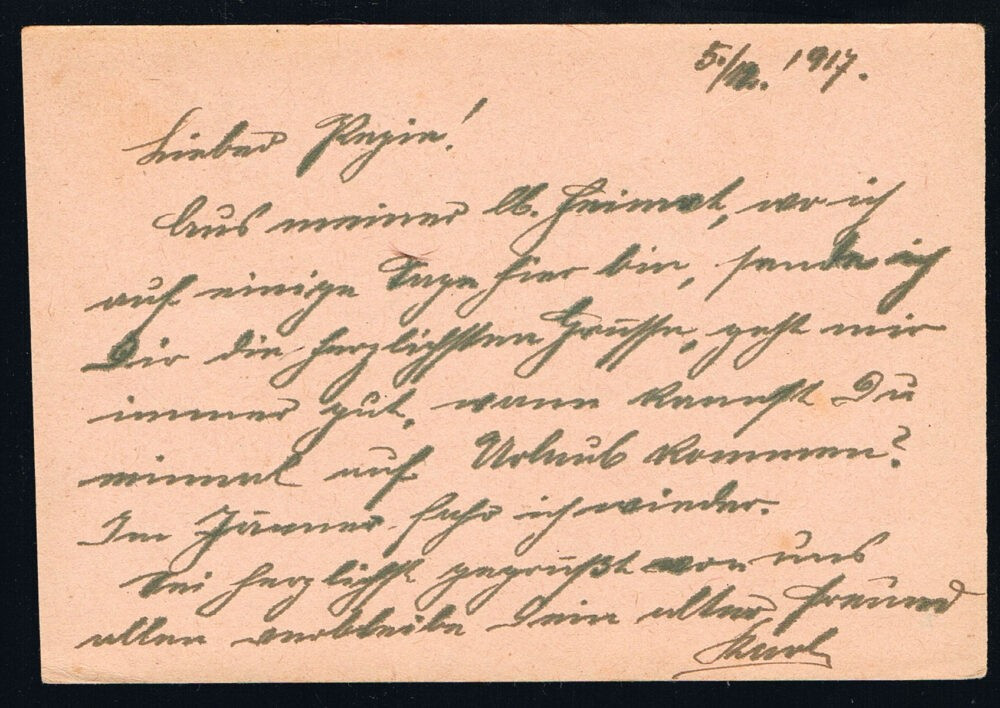 5./12. 1917.
Lieber Pepin!
Aus meiner lb. Heimat, wo ich
auf einige Tage hier bin, sende ich
Dir die herzlichsten Grüsse, geht mir
immer gut, wann kannst Du
einmal auf Urlaub kommen?
Im Jänner fahr ich wieder.
Sei herzlichst gegrüßt von uns
allen verbleibe Dein alter Freund
Karl